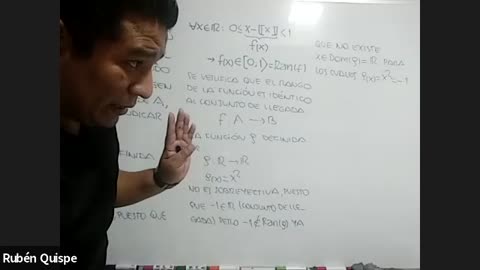 ∀x∈ℝ: 0≤x-⟦x⟧<1
f(x)
→ f(x)∈[0,1)=Ran(f)
SE VERIFICA QUE EL RANGO
DE LA FUNCIÓN ES IDÉNTICO
AL CONJUNTO DE LLEGADA
f: A → B
LA FUNCIÓN g DEFINIDA
g: ℝ → ℝ
g(x)=x²
NO ES SOBREYECTIVA, PUESTO
QUE -1∈ℝ (CONJUNTO DE LLE-
GADA) PERO -1∉Ran(g) YA
QUE NO EXISTE
x∈Dom(g)=ℝ PARA
LOS CUALES g(x)=x²=-1
DO
GEN
A,
DICAR
FINIDA
PUESTO QUE
Rubén Quispe